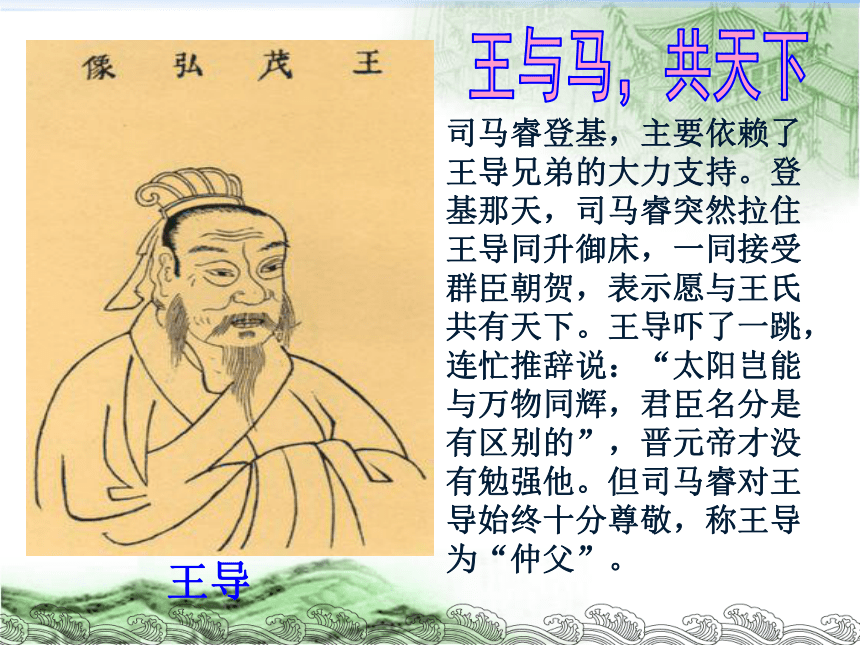 王茂弘像
王与马，共天下
司马睿登基，主要依赖了
王导兄弟的大力支持。登
基那天，司马睿突然拉住
王导同升御床，一同接受
群臣朝贺，表示愿与王氏
共有天下。王导吓了一跳，
连忙推辞说：“太阳岂能
与万物同辉，君臣名分是
有区别的”，晋元帝才没
有勉强他。但司马睿对王
导始终十分尊敬，称王导
为“仲父”。
王导